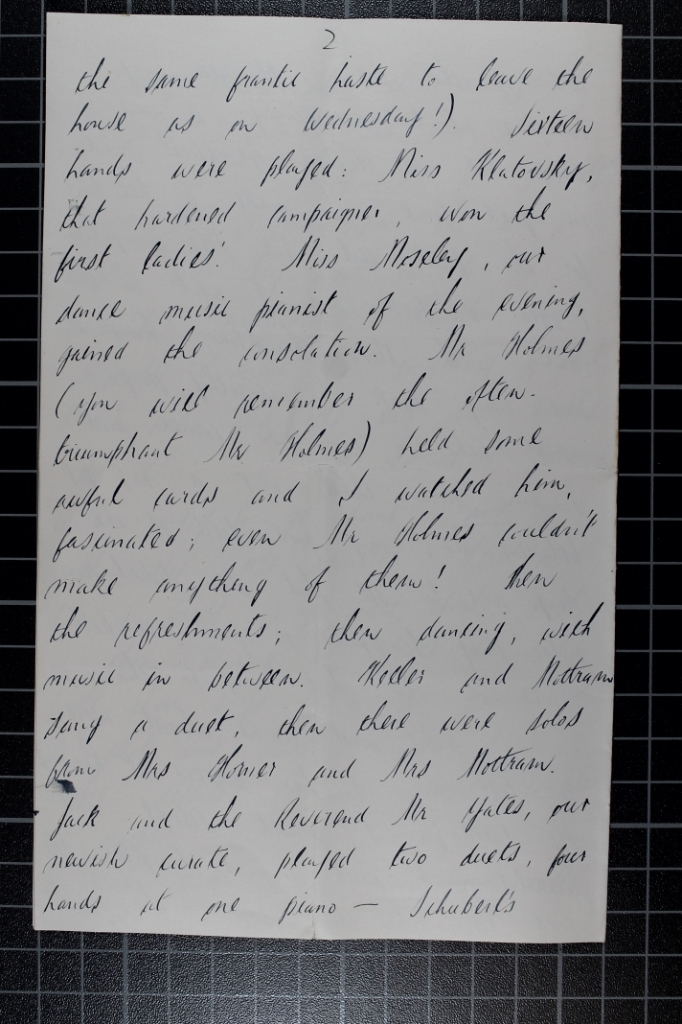 2
the same frantic haste to leave the
house as on Wednesday!). Sixteen
hands were played: Miss Klatovsky,
that hardened campaigner, won the
first ladies'. Miss Moseley, our
dance music pianist of the evening,
gained the consolation. Mr Holmes
(you will remember the often-
triumphant Mr Holmes) held some
awful cards and I watched him,
fascinated; even Mr Holmes couldn't
make anything of them! Then
the refreshments; then dancing, with
music in between. Keeler and Mottram
sang a duet, then there were solos
from Mrs Horner and Mrs Mottram.
Jack and the Reverend Mr Yates, our
newish curate, played two duets, four
hands at one piano — Schubert's